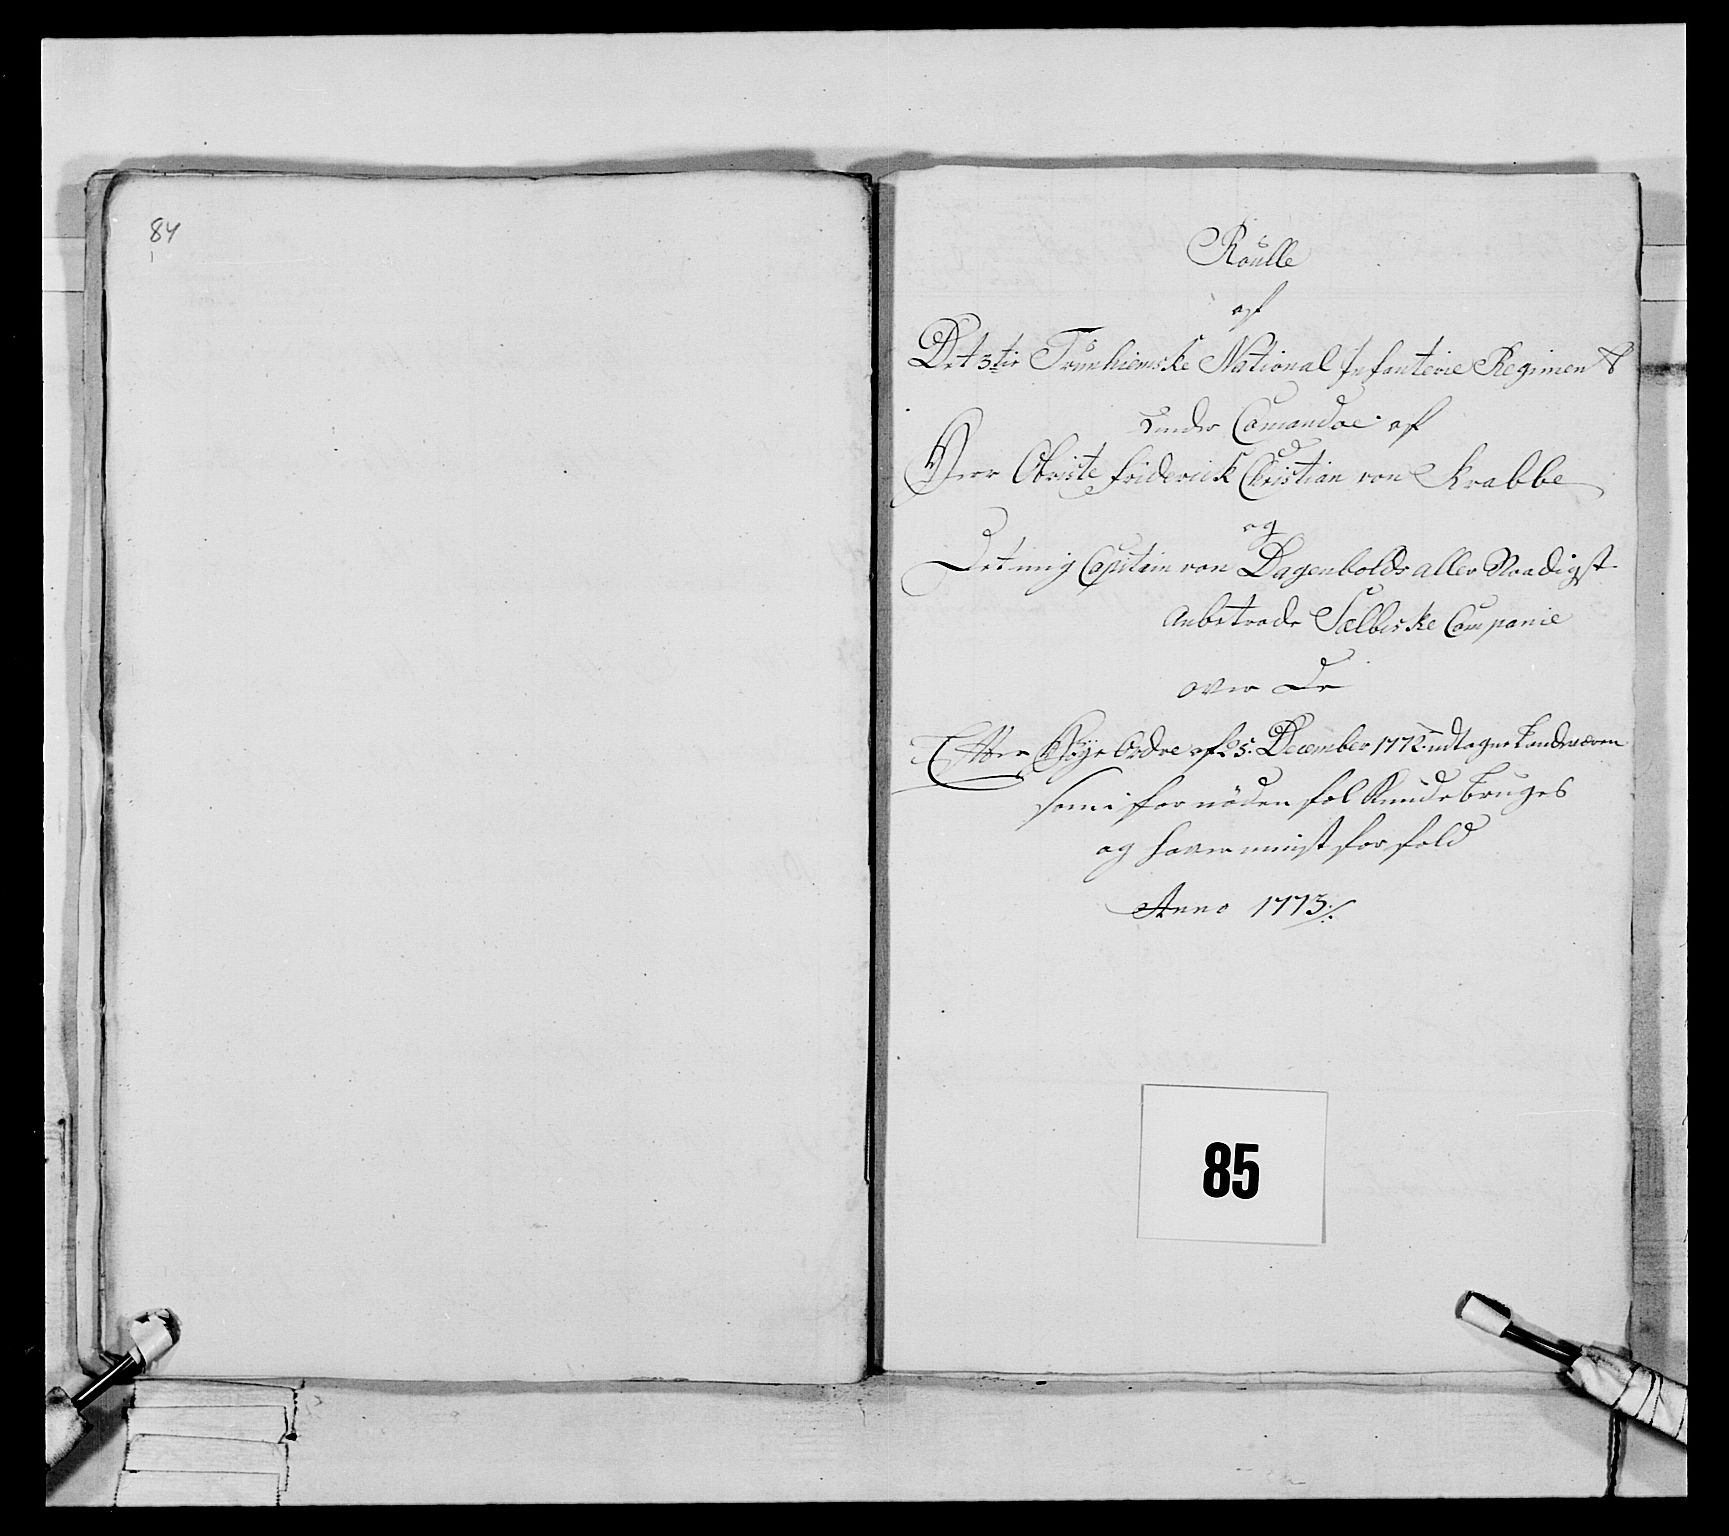 84
Roulle
af
Det 3tie Trunhiemske National Infanterie Regiment
under Comandoe af
Herr Obriste Friderick Christian von Krabbe
og
Det mig Capitain von Dagenbolds aller Naadigst
Anbetroede Sælbiske Companie
over De
Efter Høye Ordre af 5. December 1772 udtagne Landværn
som i for nöden fol Kunde bruges
og haver minst forfold
Anno 1773
85